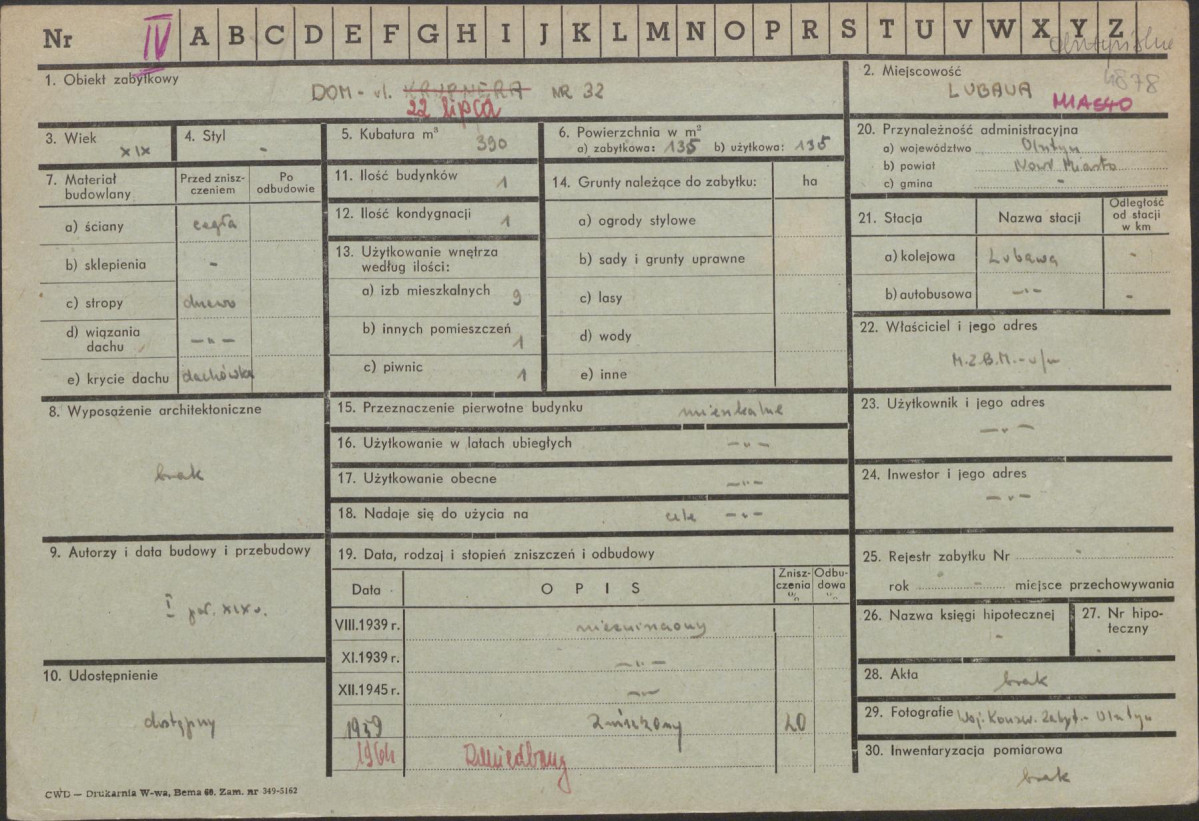 Nr IV A B C D E F G H I J K L M N O P R S T U V W X Y Z
4878
1. Obiekt zabytkowy
DOM - ul. KRUPNERA NR 32
22 lipca
2. Miejscowość
LUBAWA
MIASTO
3. Wiek
XIX
4. Styl
-
5. Kubatura m³
390
6. Powierzchnia w m²
a) zabytkowa: 135 b) użytkowa: 135
7. Materiał budowlany
Przed znisz-
czeniem
Po
odbudowie
a) ściany cegła
b) sklepienia -
c) stropy drewo
d) wiązania
dachu -„-
e) krycie dachu dachówka
8. Wyposażenie architektoniczne
brak
9. Autorzy i data budowy i przebudowy
I poł. XIX w.
10. Udostępnienie
dostępny
11. Ilość budynków 1
12. Ilość kondygnacji 1
13. Użytkowanie wnętrza
według ilości:
a) izb mieszkalnych 9
b) innych pomieszczeń 1
c) piwnic 1
14. Grunty należące do zabytku: ha
a) ogrody stylowe
b) sady i grunty uprawne
c) lasy
d) wody
e) inne
15. Przeznaczenie pierwotne budynku mieszkalne
16. Użytkowanie w latach ubiegłych -„-
17. Użytkowanie obecne -„-
18. Nadaje się do użycia na cele -„-
19. Data, rodzaj i stopień zniszczeń i odbudowy
Data OPIS Znisz-
czenia
%
Odbu-
dowa
%
VIII.1939 r.
XI.1939 r. -„-
XII.1945 r. -„-
1959 Zniszczony 20
1964 Zaniedbany
20. Przynależność administracyjna
a) województwo Olsztyn
b) powiat Nowe Miasto
c) gmina -
21. Stacja Nazwa stacji Odległość
od stacji
w km
a) kolejowa Lubawa -
b) autobusowa -„- -
22. Właściciel i jego adres
M.Z.B.M. - w/m
23. Użytkownik i jego adres
-„-
24. Inwestor i jego adres
-„-
25. Rejestr zabytku Nr -
rok - miejsce przechowywania
26. Nazwa księgi hipotecznej
-
27. Nr hipo-
teczny
28. Akta brak
29. Fotografie Woj. Konserw. Zabyt. - Olsztyn
30. Inwentaryzacja pomiarowa
brak
CWD — Drukarnia W-wa, Bema 60. Zam. nr 349-5162